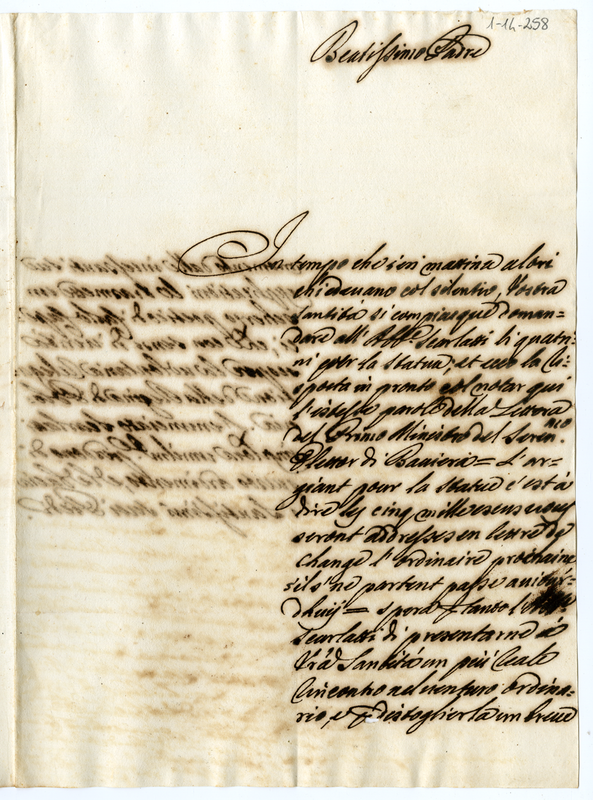 1-14-258
Beatissimo Padre
In tempo che ieri mattina altri
chiedevano col silentio, Vostra
Santità si compiacque doman-
dare all' Abb.e Scarlatti li quatri-
ni per la statua; et ecco la Ri-
sposta in pronto col notar qui
l'istesse parole della Lettera
del Primo Ministro del Seren.mo
Elettor di Baviera = L'ar-
giant pour la statue c'est à
dire les cinq mille escus
seront addresses en lettre de
change l'ordinaire prochaine
s'ils ne partent passe aujour-
dhuij = spera tanto l'Abb.e
Scarlatti di presentarne à
V.ra Santità un più Reale
Rincontro nel venturo ordina-
rio, e distoglierla in breve